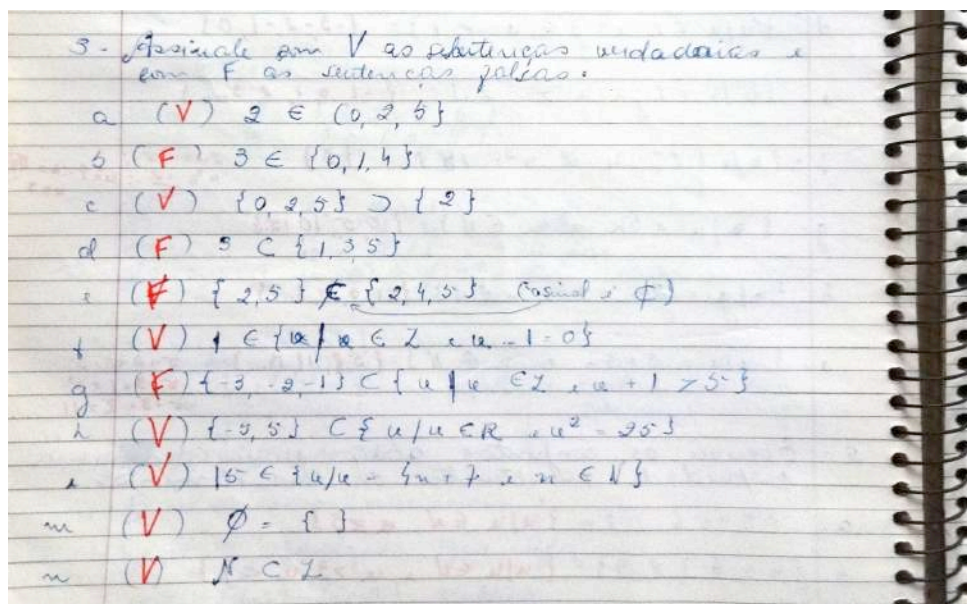 3- Assinale com V as setenças verdadeiras e
com F as sentenças falsas.
a (V) 2 ∈ {0, 2, 5}
b (F) 3 ∈ {0, 1, 4}
c (V) {0, 2, 5} ⊃ {2}
d (F) 3 ⊂ {1, 3, 5}
(F) {2, 5} {2, 4, 5} (o sinal é ⊄)
f (V) 1 ∈ {x | x ∈ Z e x - 1 = 0}
g (F) {-3, -2, -1} ⊂ {x | x ∈ Z e x + 1 > 5}
h (V) {-5, 5} ⊂ {x / x ∈ R e x² = 25}
i (V) 15 ∈ {x/x = 4n + 7 e n ∈ N}
m (V) Ø = { }
n (V) N ⊂ Z